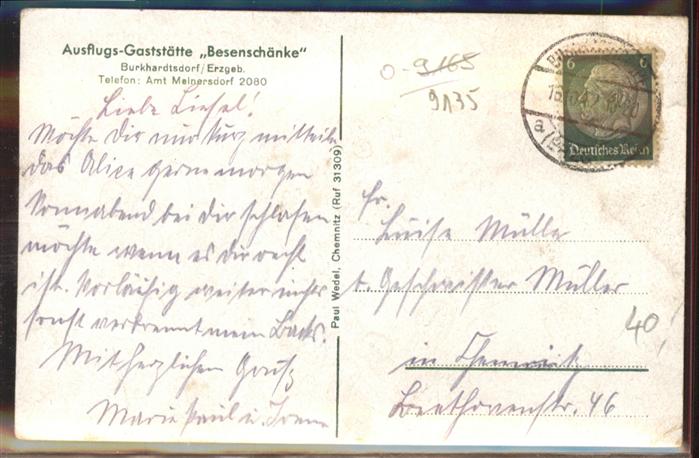 Ausflugs-Gaststätte „Besenschänke"
Burkhardtsdorf/Erzgeb.
Telefon: Amt Meinersdorf 2080
0-9165
9135
Liebe Liesel!
Möchte Dir nur kurz mitteilen
das Alice gerne morgen
Sonnabend bei Dir schlafen
möchte wenn es Dir recht
ist. Vorläufig weiter nichts
sonst verbrennt mein
Mit herzlichen Gruß
Marie Paul u.
Paul Wedel, Chemnitz (Ruf 31309)
6 6
Deutsches Reich
a
Fr.
Luise Müller
b. Geschwister Müller
in Chemnitz
Beethovenstr. 46
40,